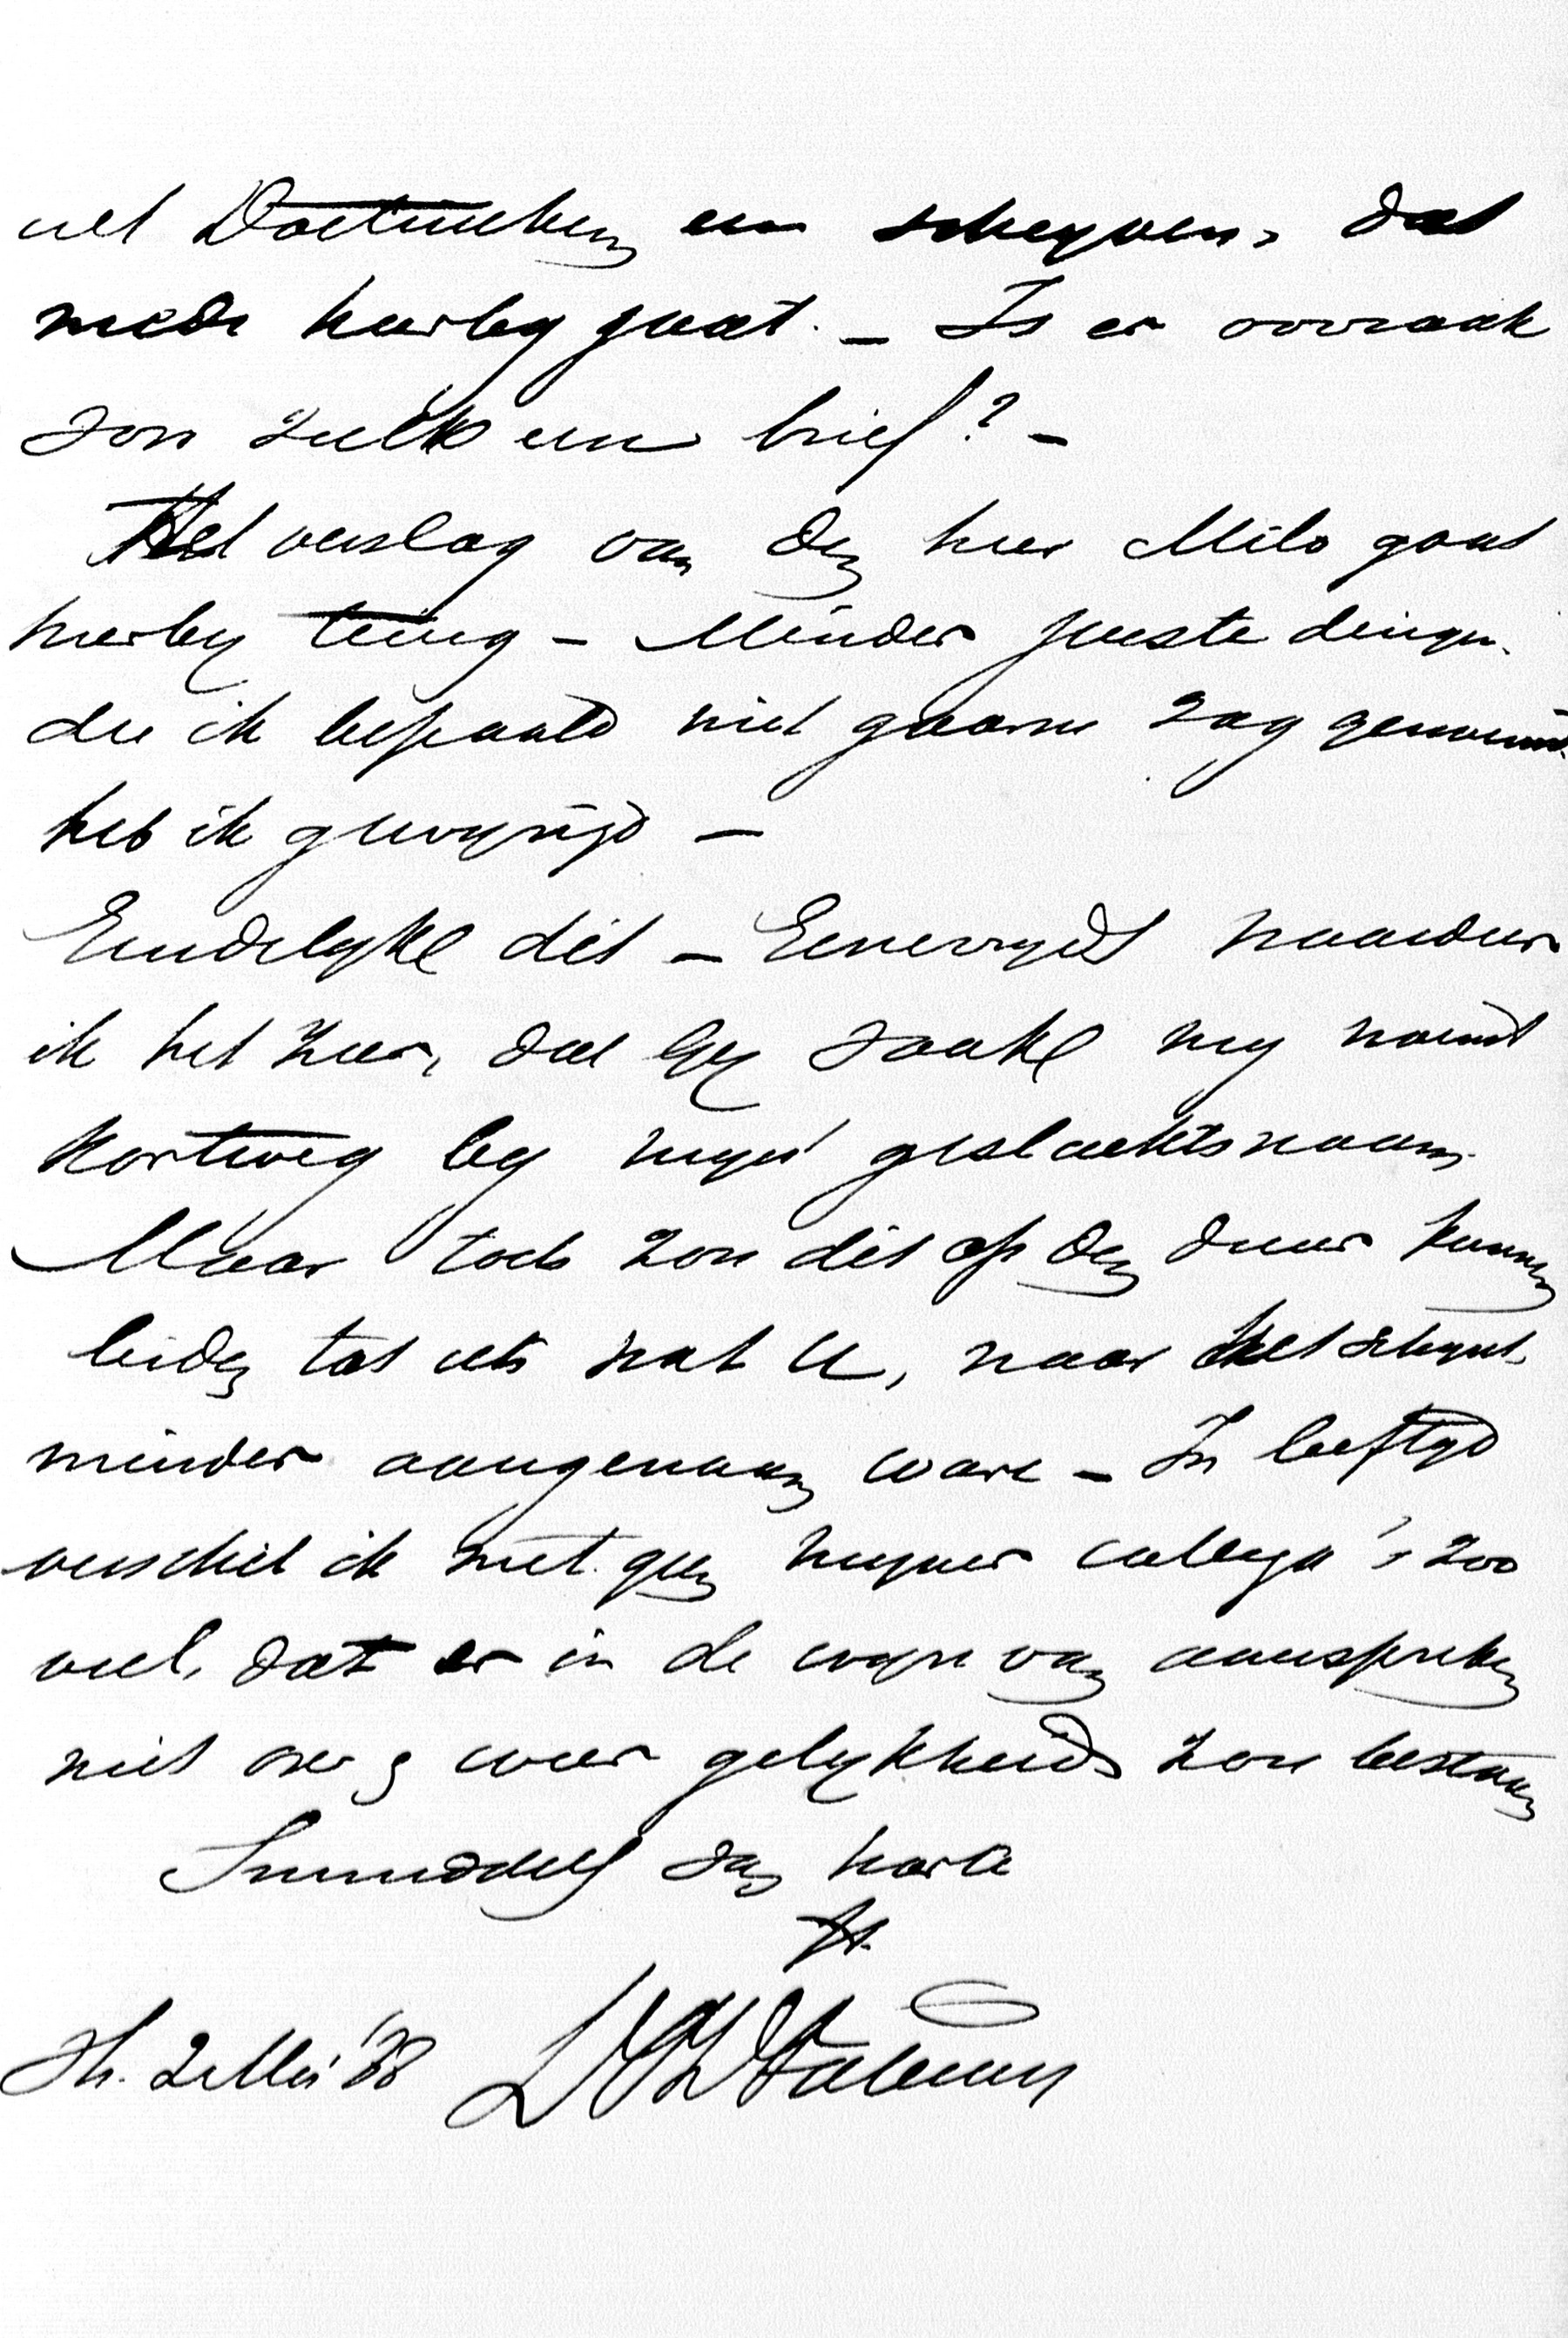 uit Doetinchem een schryven, dat
mede hierby gaat. — Is er oorzaak
voor zulk een brief? —
Het verslag van den heer Milo gaat
hierby terug — Minder juiste dingen
die ik bepaald niet gaarne zag genoemd
heb ik gewyzigd —
Eindelyk dit — Eenerzyds waardeer
ik het zeer, dat Gy vaak my noemt
kortweg by myn geslachtsnaam.
Maar toch zou dit op den duur kunnen
leiden tot iets wat U, naar het schynt,
minder aangenaam ware — In leeftyd
verschil ik met geen myner collega's zoo
veel, dat er in de wyze van aanspreken
niet over en weer gelykheid zou bestaan
Inmiddels van harte
tt.
Mei '38